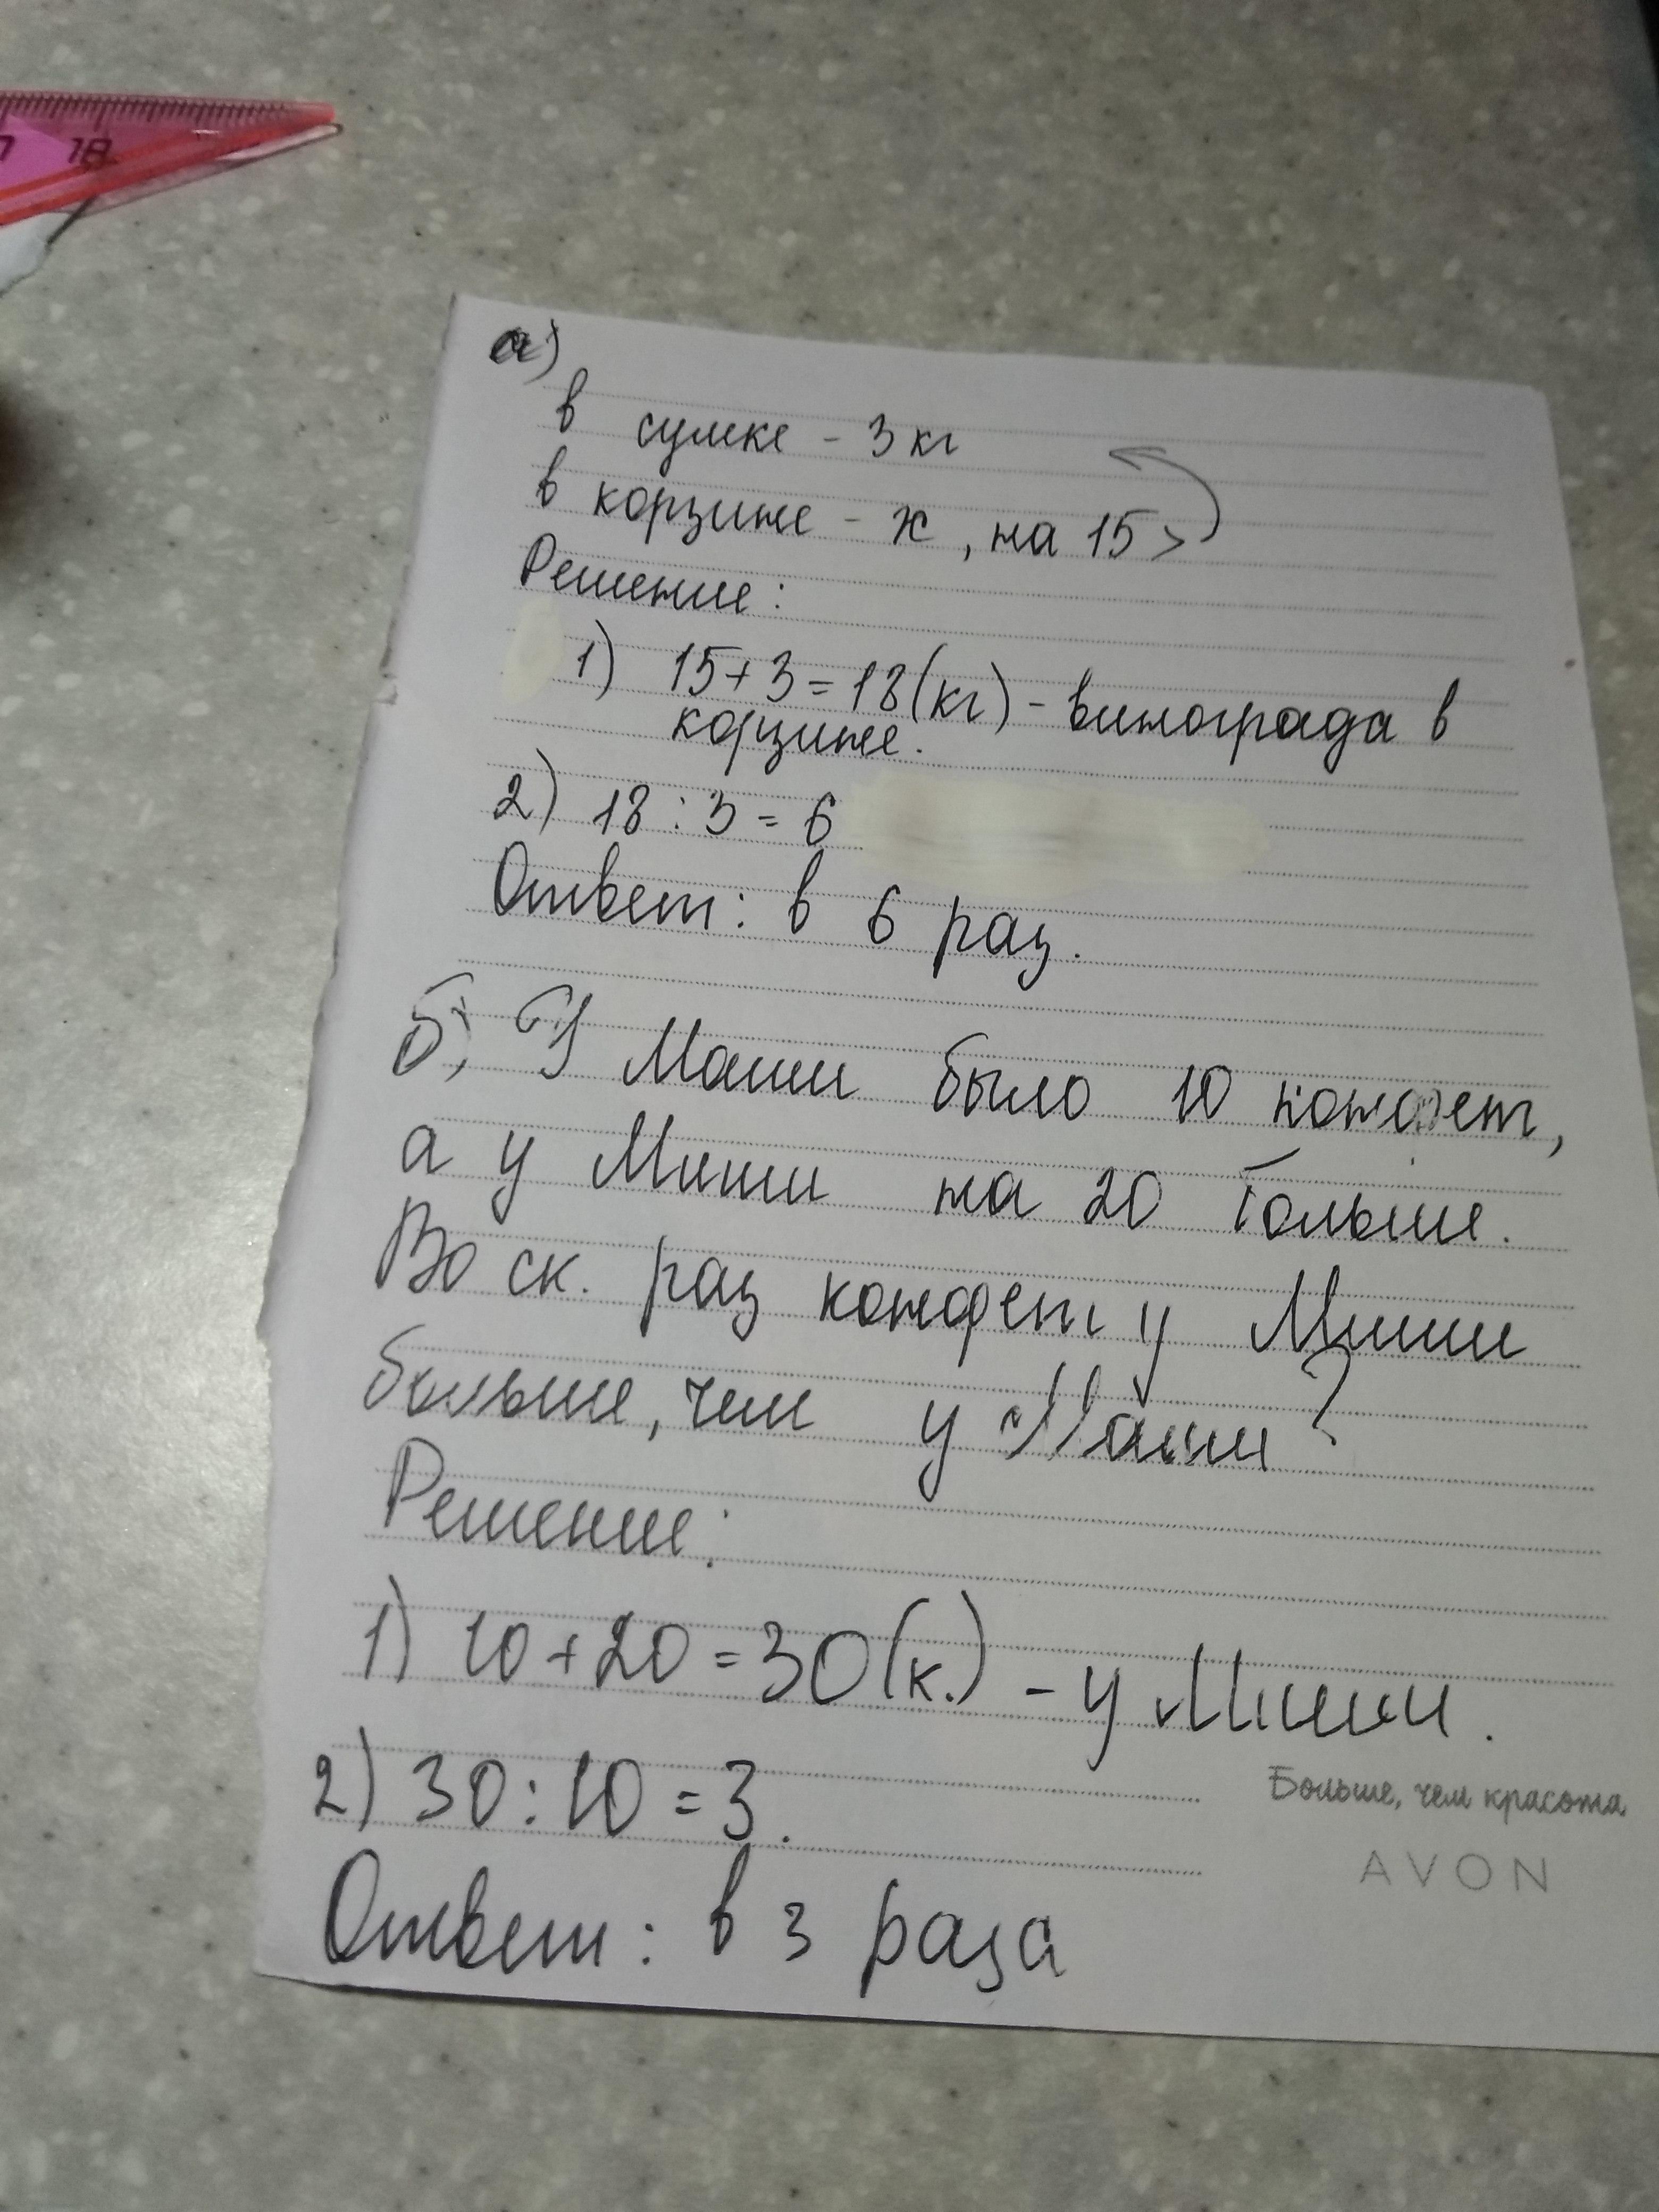 7 18
а)
в сумке - 3 кг
в корзине - x, на 15 >
Решение:
1) 15+3=18(кг) - винограда в
корзине.
2) 18:3=6
Ответ: в 6 раз.
б) У Маши было 10 конфет,
а у Миши на 20 больше.
Во ск. раз конфет у Миши
больше, чем у Маши?
Решение:
1) 10+20=30(к.) - у Миши.
2) 30:10=3.
Больше, чем красота
AVON
Ответ: в 3 раза